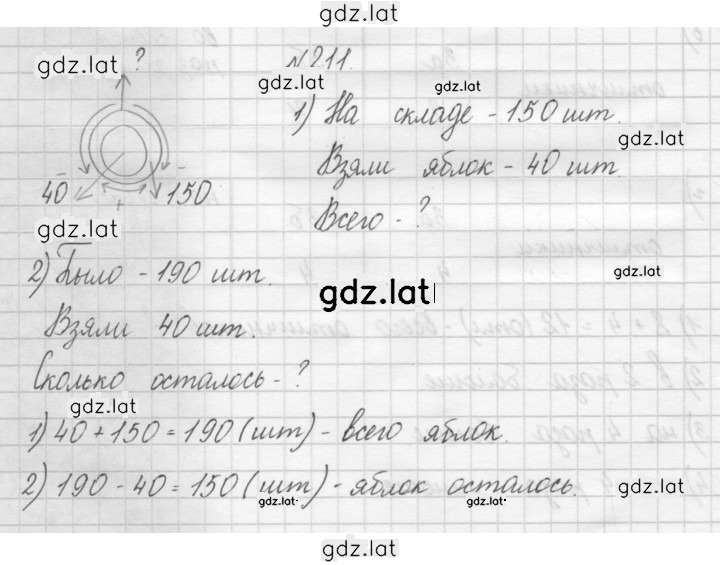 gdz.lat
gdz.lat ? №211.
gdz.lat gdz.lat
1) На складе - 150 шт.
gdz.lat
Взяли яблок - 40 шт.
40 - + - 150
Всего - ?
gdz.lat
2) Было - 190 шт.
gdz.lat
gdz.lat
Взяли 40 шт.
gdz.lat
Сколько осталось - ?
gdz.lat
1) 40 + 150 = 190 (шт) - всего яблок.
2) 190 - 40 = 150 (шт) - яблок осталось.
gdz.lat gdz.lat gdz.lat
gdz.lat